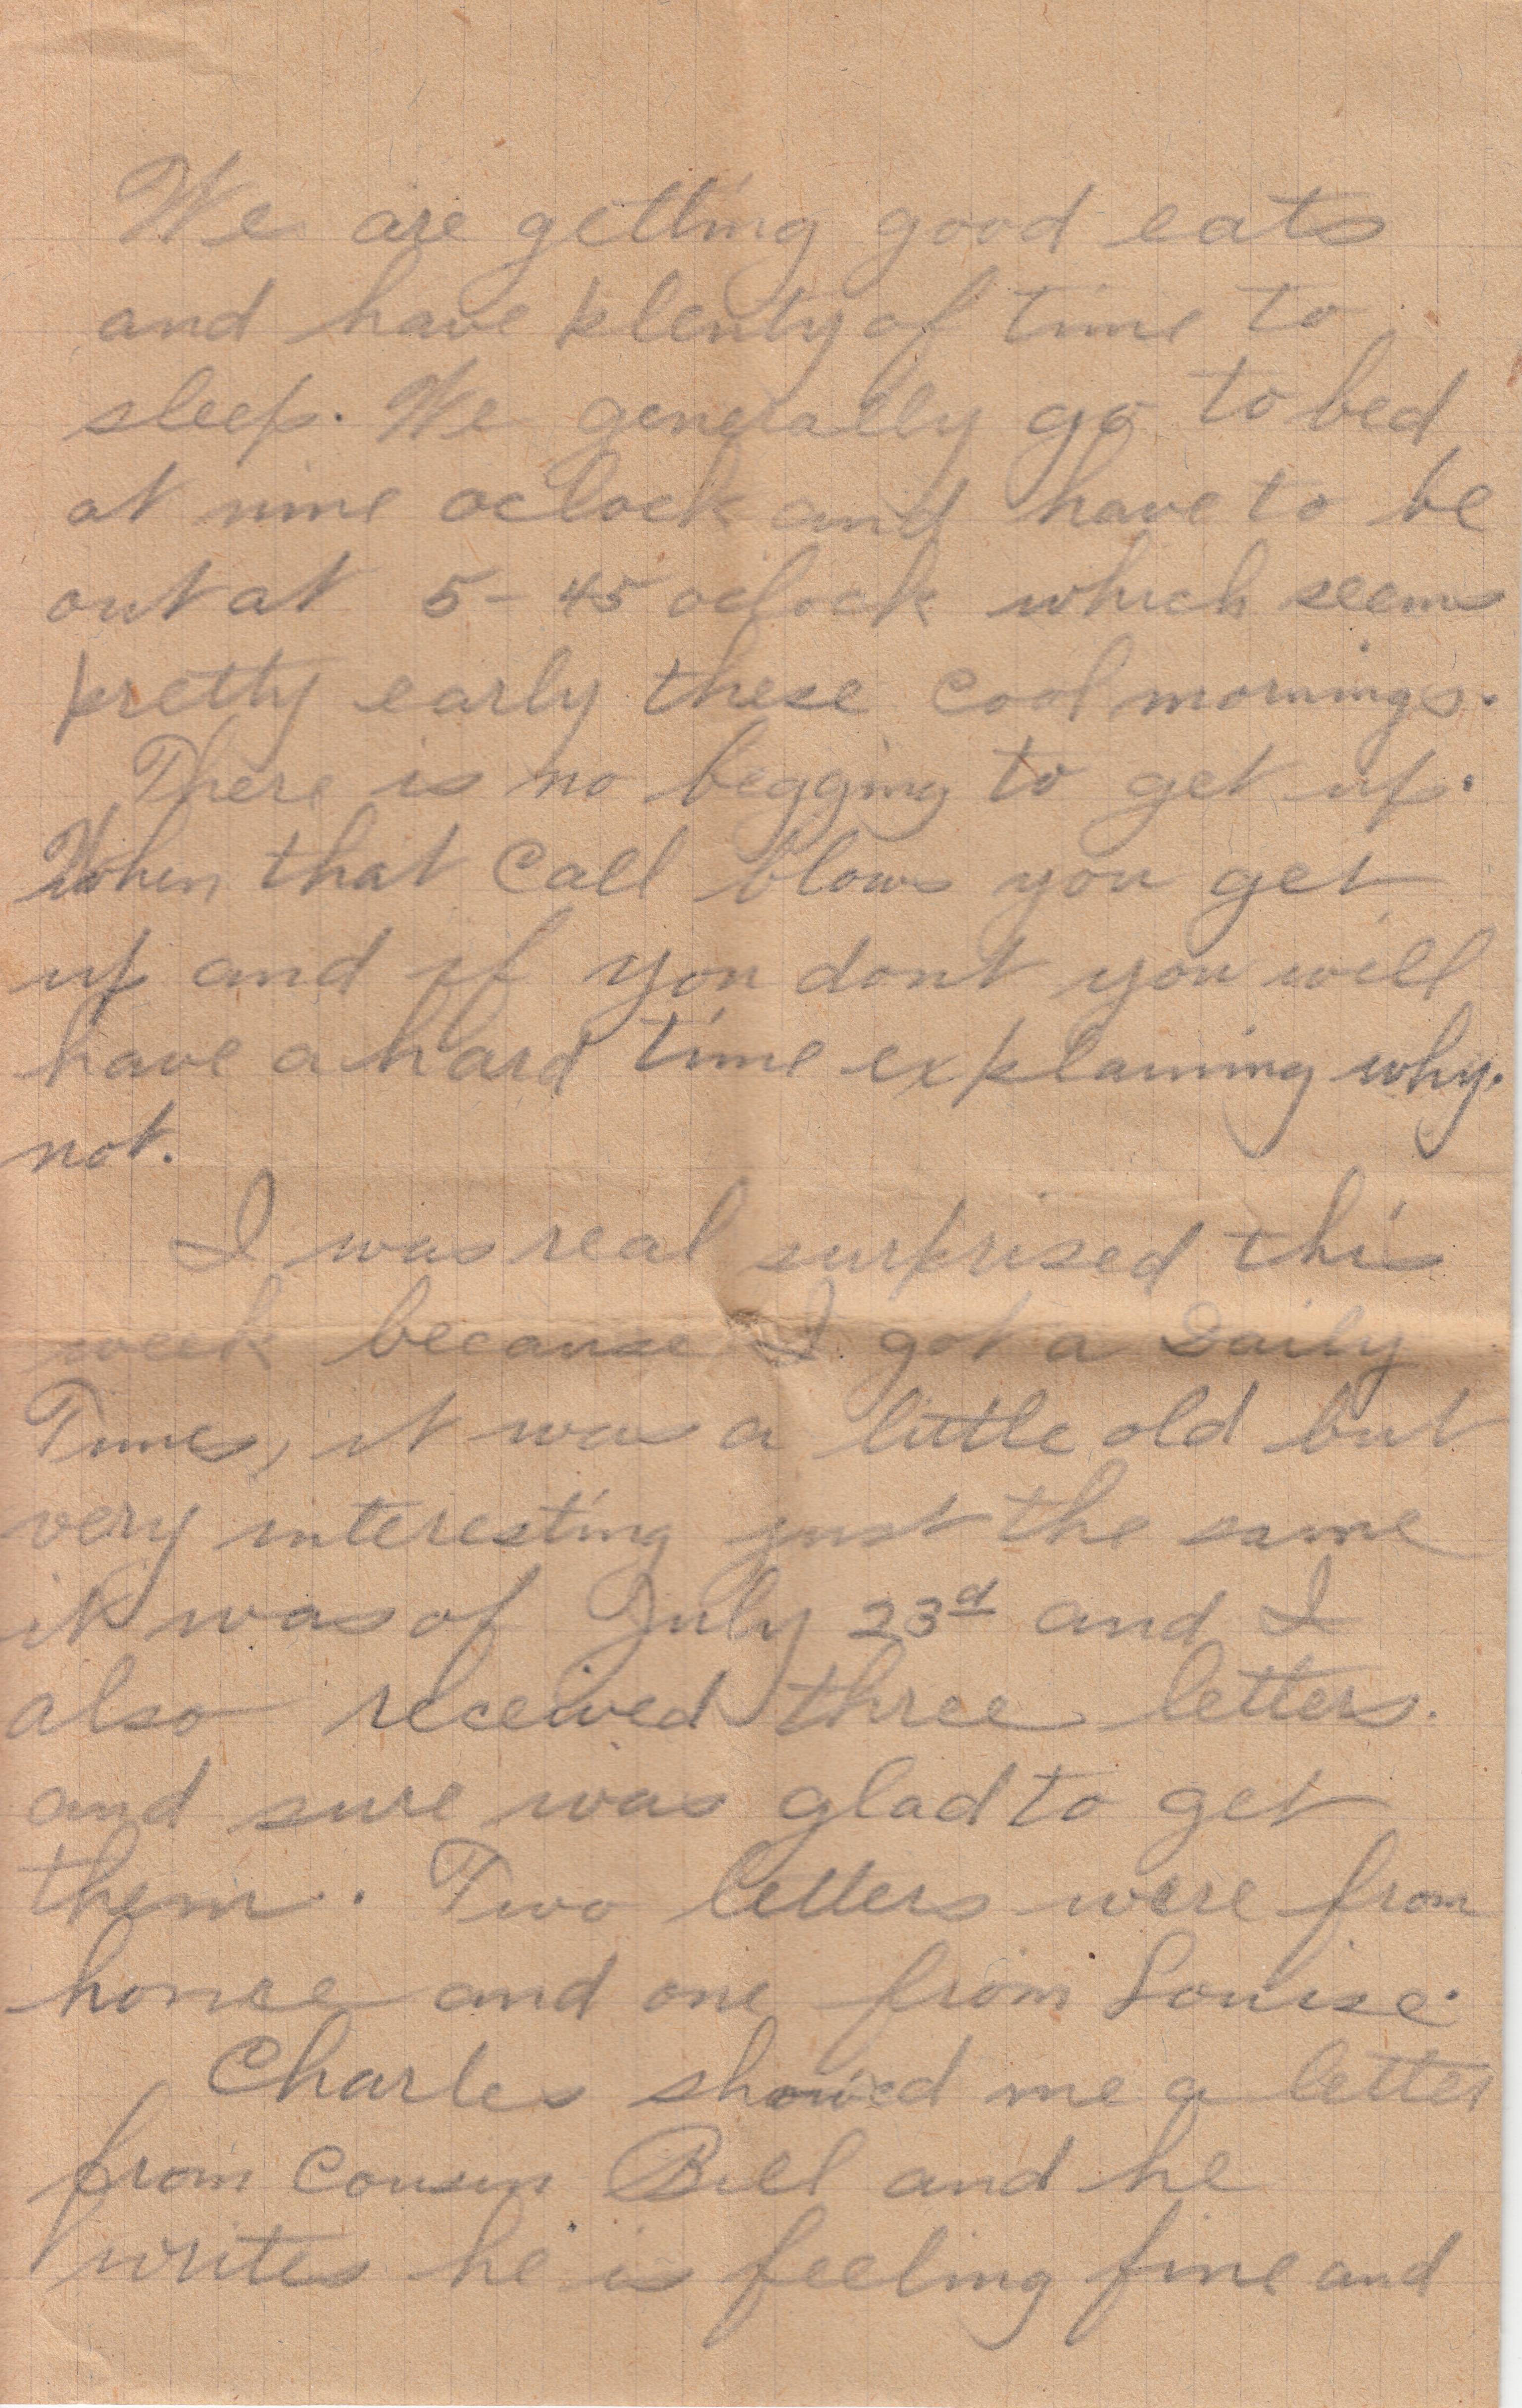 We are getting good eats
and have plenty of time to
sleep. We generally go to bed
at nine oclock and have to be
out at 5-45 oclock which seems
pretty early these cool mornings.
There is no begging to get up.
When that call blows you get
up and if you dont you will
have a hard time explaining why.
not.
I was real surprised this
week because I got a Daily
Times, it was a little old but
very interesting just the same
it was of July 23d and I
also received three letters.
and sure was glad to get
them. Two letters were from
home and one from Louise.
Charles showed me a letter
from Cousin Bill and he
writes he is feeling fine and